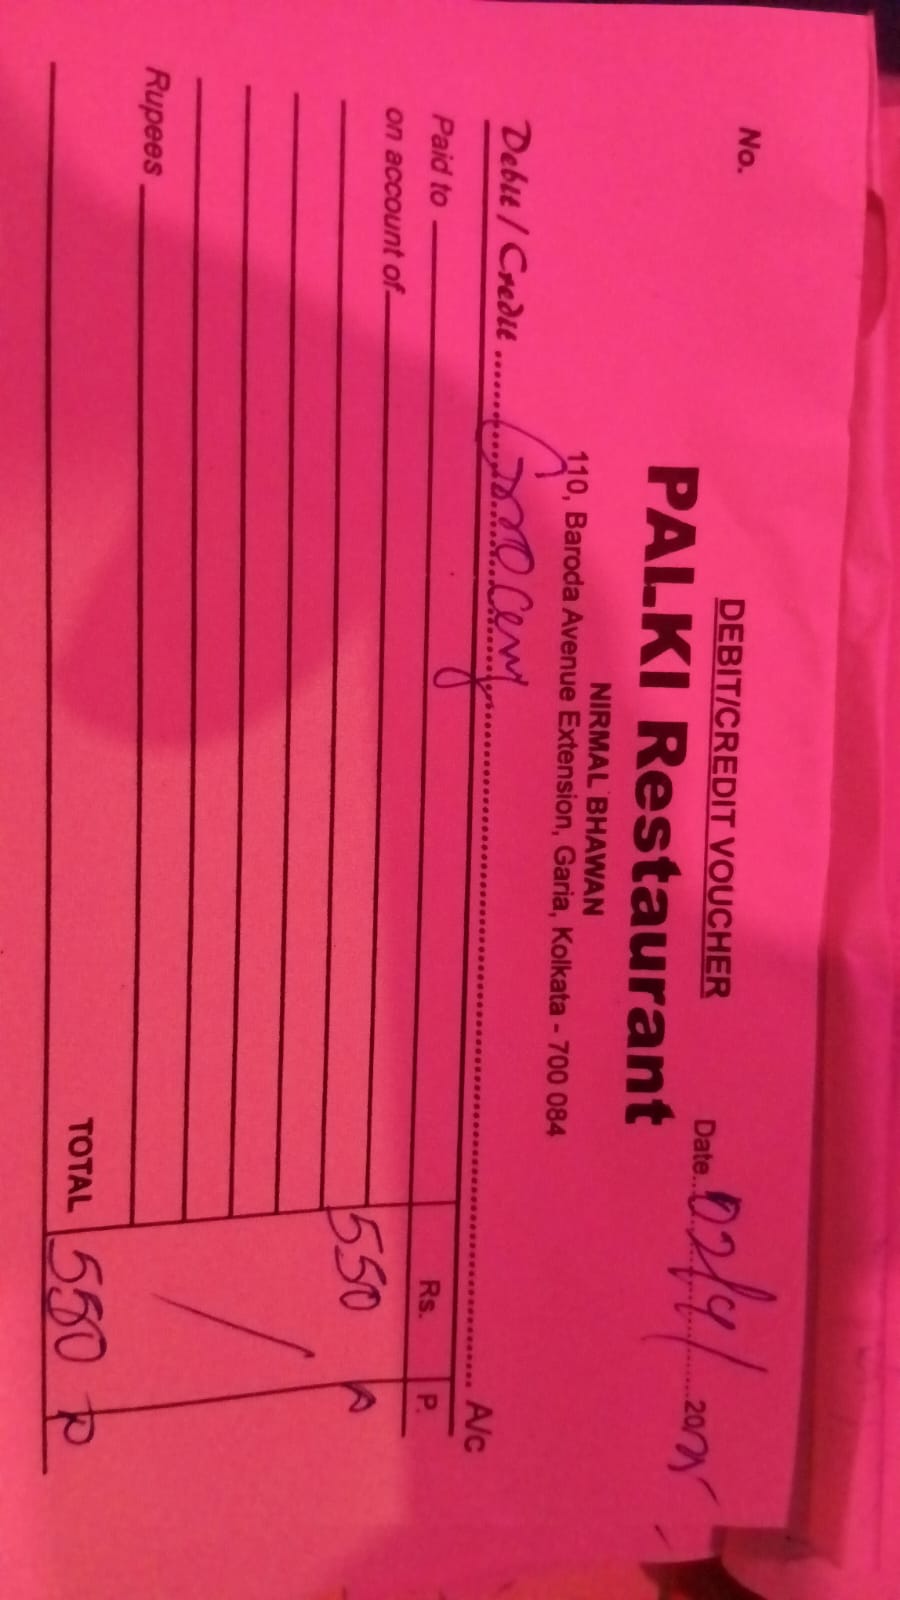 DEBIT/CREDIT VOUCHER
No.
Date...02/4/......20
PALKI Restaurant
NIRMAL BHAWAN
110, Baroda Avenue Extension, Garia, Kolkata - 700 084
Debit / Credit ........................ A/c
Paid to
Rs. P.
on account of
550
Rupees
TOTAL 550